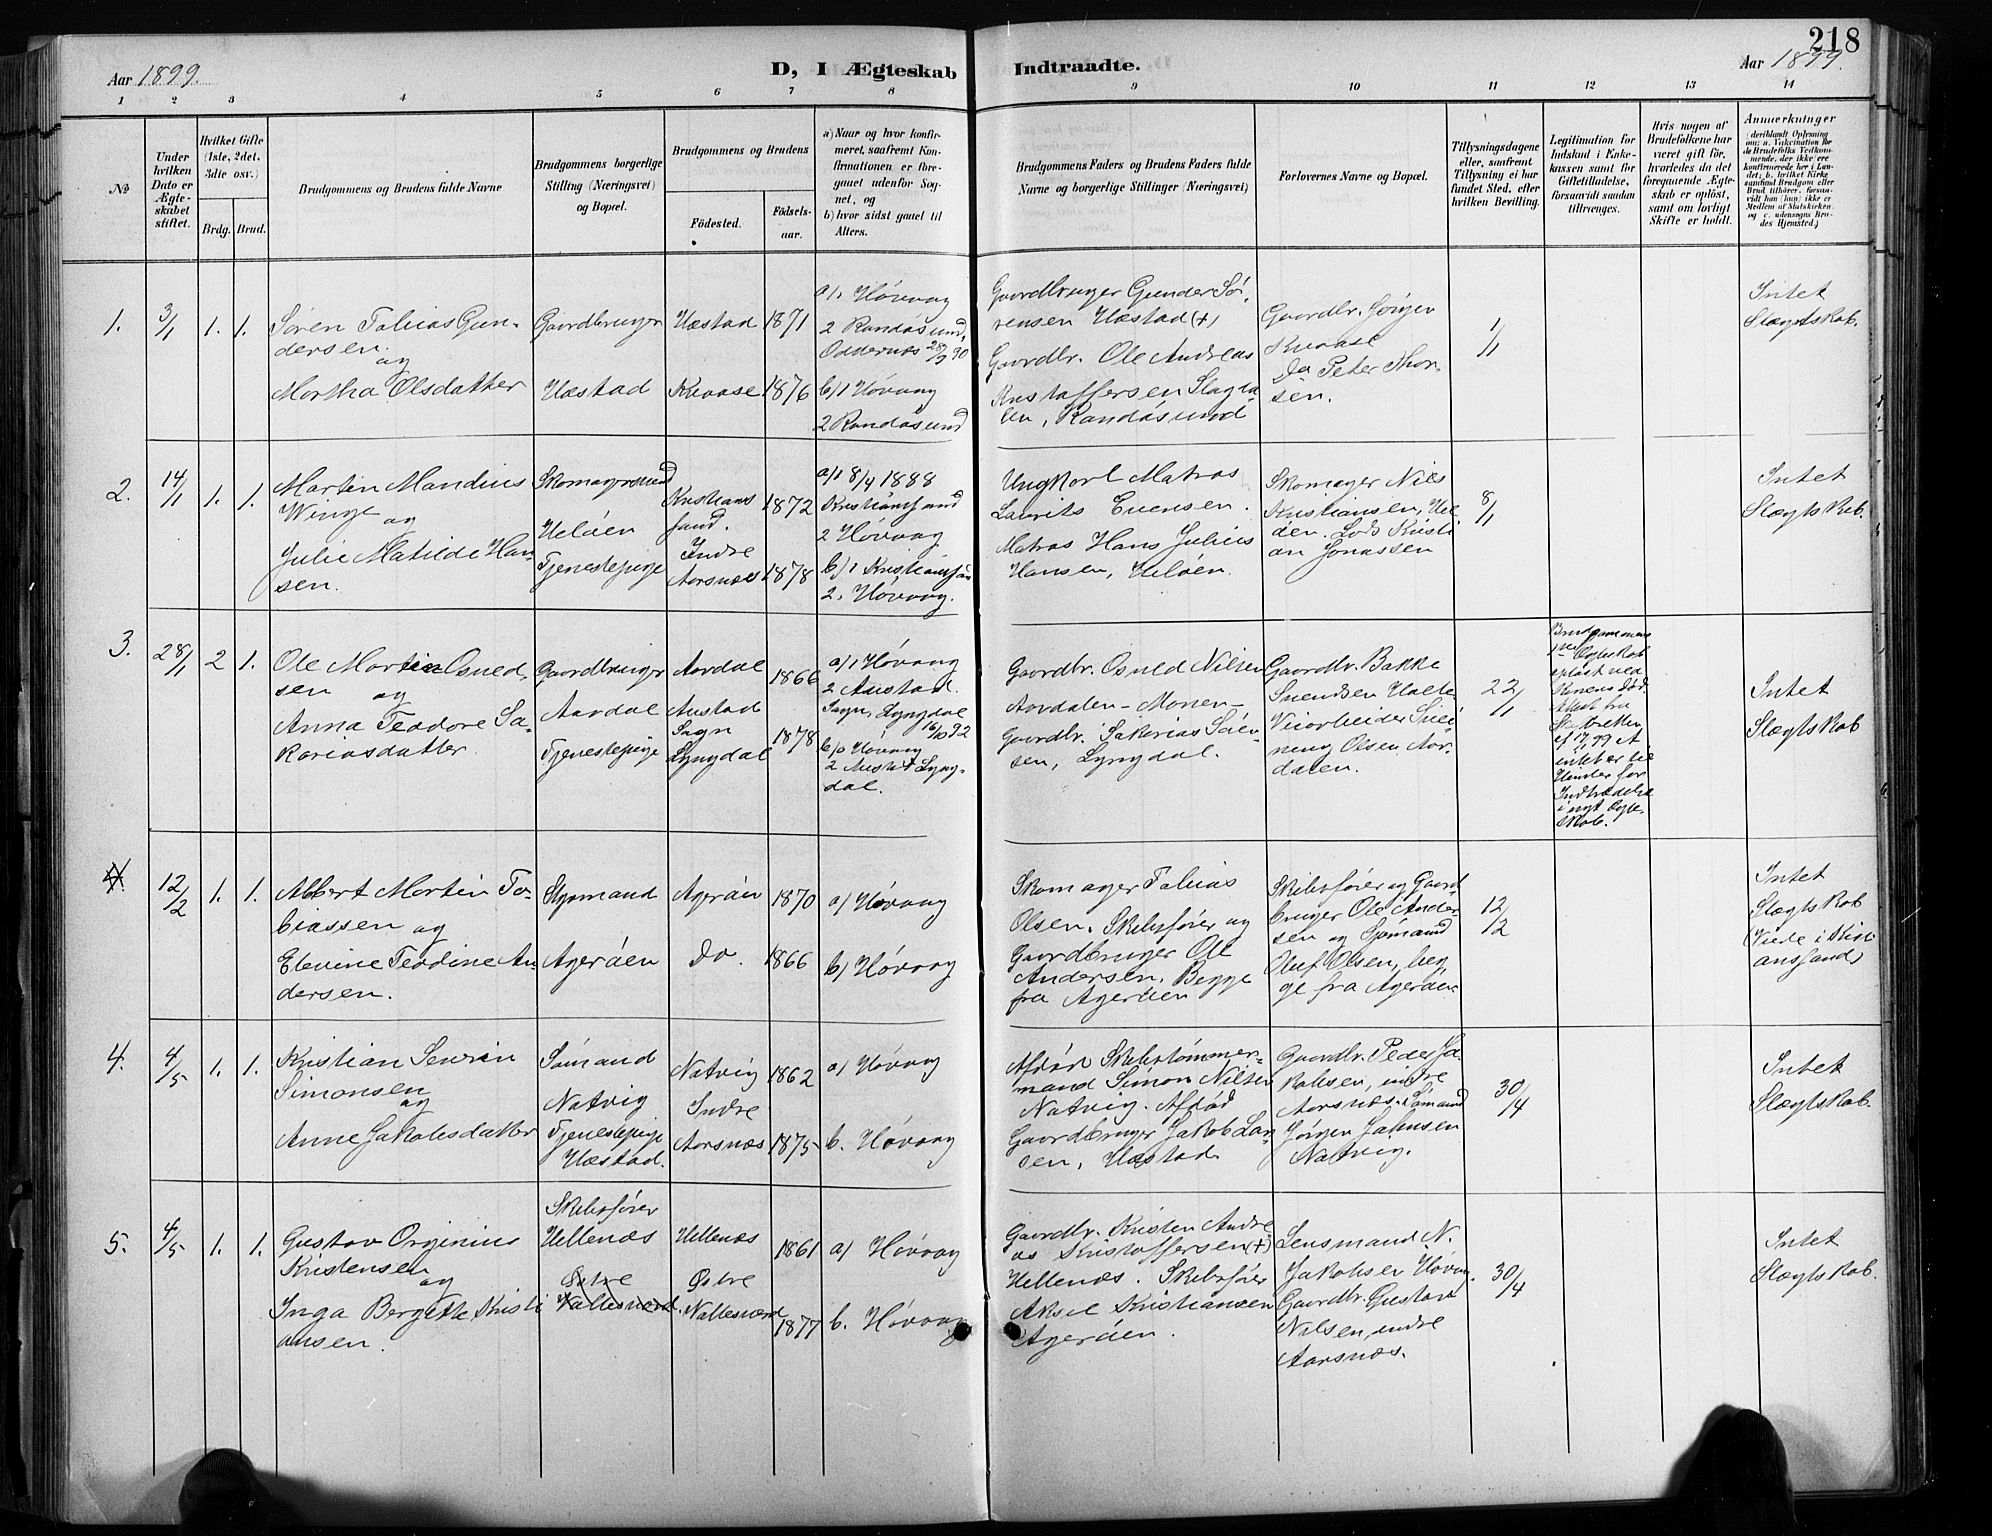 218
Aar 1899.
D, I Ægteskab
Indtraadte.
Aar 1899.
1 2 3 4 5 6 7 8 9 10 11 12 13 14
№
Under hvilken Dato er Ægteskabet stiftet.
Hvilket Gifte (1ste, 2det, 3die osv.)
Brdg. Brud.
Brudgommens og Brudens fulde Navne
Brudgommens borgerlige Stilling (Næringsvei) og Bopæl.
Brudgommens og Brudens
Fødested.
Fødselsaar.
a) Naar og hvor konfirmeret, saafremt Konfirmationen er foregaaet udenfor Sognet, og
b) hvor sidst gaaet til Alters.
Brudgommens Faders og Brudens Faders fulde Navne og borgerlige Stillinger (Næringsvei)
Forlovernes Navne og Bopæl.
Tillysningsdagene eller, saafremt Tillysning ei har fundet Sted, efter hvilken Bevilling.
Legitimation for Indskud i Enkekassen samt for Giftetilladelse, forsaavidt saadan tiltrænges.
Hvis nogen af Brudefolkene har været gift før, hvorledes da det foregaaende Ægteskab er opløst, samt om lovligt Skifte er holdt.
Anmærkninger
(deriblandt Oplysning om: a. Vakcination for de Brudefolks Vedkommende, der ikke ere konfirmerede her i Landet; b. hvilket Kirkesamfund Brudgom eller Brud tilhører, forsaavidt han (hun) ikke er Medlem af Statskirken, og c. udensogns Brudes Hjemsted.)
1.
3/1
1. 1.
Søren Tobias Gun-
dersen.
og
Martha Olsdatter
Gaardbruger
Hæstad
Hæstad
Kvaase
1871
1876
a/1 Høvaag
2 Randøsund,
Oddernæs 28/9 90
b/1 Høvaag
2 Randøsund
Gaardbruger Gunder Sø-
rensen Hæstad (+)
Gaardbr. Ole Andreas
Kristoffersen Slagda-
len, Randøsund
Gaardbr. Jørgen
Kvaase
Do Peter Thor-
sen.
1/1
Intet
Slægtskab.
2.
14/1
1. 1.
Martin Mandius
Winge
og
Julie Matilde Han-
sen.
Skomagersvend
Heløen
Tjenestepige
Kristians
sand.
Indre
Aarsnæs
1872
1878
a/1 8/4 1888
Kristianssand
2 Høvaag
b/1 Kristianssan
2. Høvaag.
Ungkarl Matros
Laurits Evensen.
Matros Hans Julius
Hansen, Heløen.
Skomager Nils
Kristiansen, Hel
øen. Lods Kristi
an Jonassen
8/1
Intet
Slægtskab.
3.
28/1
2 1.
Ole Martin Osued-
sen
og
Anna Teodore Sa-
kariasdatter.
Gaardbruger
Aardal
Tjenestepige
Aardal
Austad
Sogn
Lyngdal
1866
1878
a/1 Høvaag
2 Austad
Sogn, Lyngdal
16/10 92
b/1 Høvaag
2 Austad Lyng-
dal.
Gaardbr. Osued Nilsen
Aardalen-Monen-
Gaardbr. Sakarias Søv-
sen, Lyngdal.
Gaardbr. Bakke
Svendsen Holte
Veiarbeider Svei-
nung Olsen Aar-
dalen.
22/1
Brudgommens
1ste Ægteskab
opløst ved
Konens Død.
Attest fra
Skifteretten
af 17/1 99 at
intet er til
Hinder for
Indtrædelse
i nyt Ægte-
skab.
Intet
Slægtskab
4.
12/2
1. 1.
Albert Martin To-
biassen og
Elevine Teodine An
dersen.
Styrmand
Agerøen
Agerøen
Do.
1870
1866
a) Høvaag
b) Høvaag
Skomager Tobias
Olsen. Skibsfører og
Gaardbruger Ole
Andersen. Begge
fra Agerøen
Skibsfører og Gaard-
bruger Ole Ander-
sen og Sømand
Oluf Olsen, beg
ge fra Agerøen.
12/2
Intet
Slægtskab
(Viede i Kristi
anssand)
4.
4/5
1. 1.
Kristian Severin
Simonsen
og
Anne Jakobsdatter
Sømand
Natvig
Tjenestepige
Hæstad.
Natvig
Indre
Aarsnæs
1862
1875
a) Høvaag
b. Høvaag
Afdød Skibstømmer-
mand Simon Nilsen
Natvig. Afdød
Gaardbruger Jakob Lar-
sen, Hæstad
Gaardbr. Peder Ja-
kobsen, indre
Aarsnæs. Sømand
Jørgen Jakobsen
Natvig.
30/4
Intet
Slægtskab.
5.
4/5
1. 1.
Gustav Orginius
Kristensen
og
Inga Bergitte Kristi
ansen.
Skibsfører
Hellenæs
Østre
Vallesværd.
Hellenæs
Østre
Vallesværd
1861
1877
a) Høvaag
b. Høvaag
Gaardbr. Kristen Andre
as Kristoffersen (+)
Hellenæs. Skibsfører
Aksel Kristiansen
Agerøen.
Lensmand N.
Jakobsen Høvaag.
Gaardbr. Gustav
Nilsen, indre
Aarsnæs.
30/4
Intet
Slægtskab.